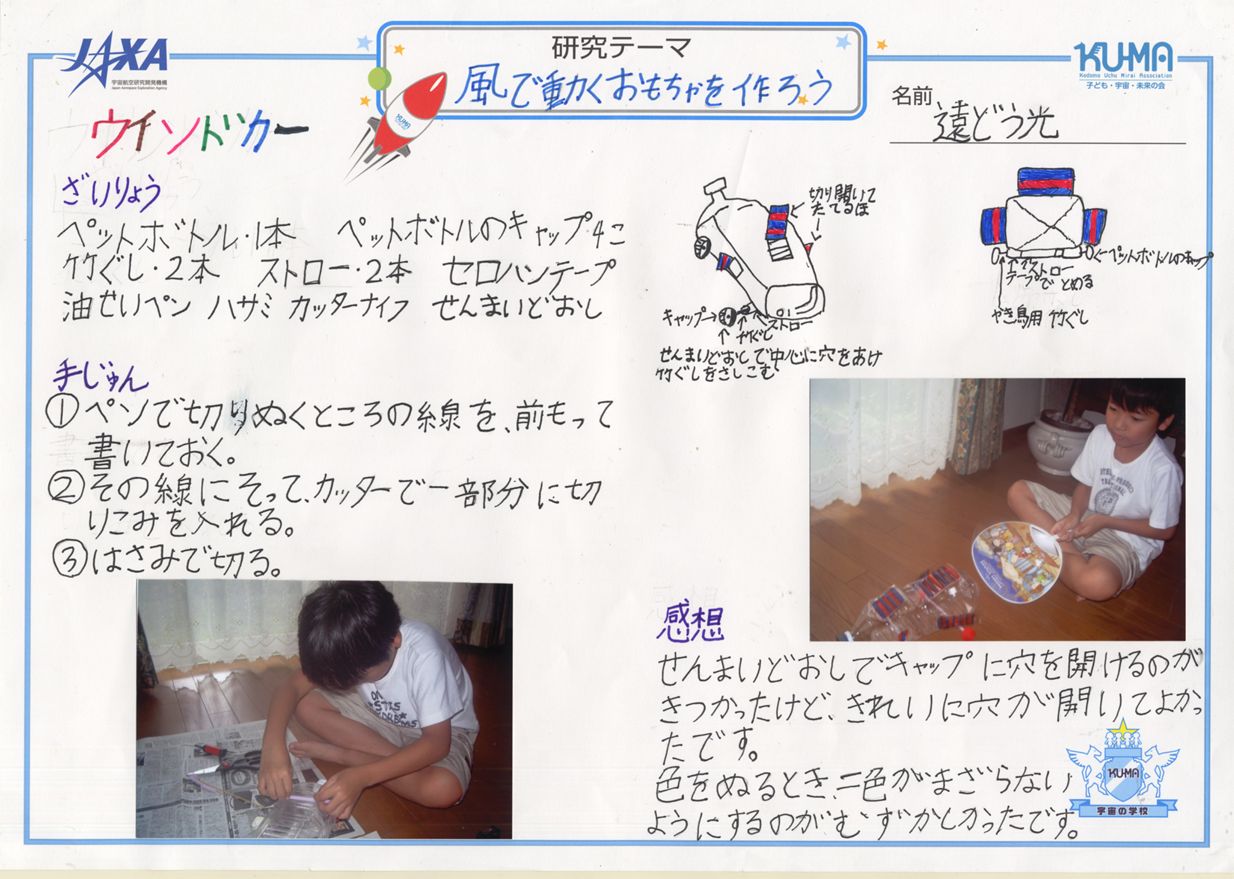 JAXA
宇宙航空研究開発機構
Japan Aerospace Exploration Agency
研究テーマ
風で動くおもちゃを作ろう
KUMA
KUMA
Kodomo Uchu Mirai Association
子ども・宇宙・未来の会
名前
遠どう光
ウインドカー
ざいりょう
ペットボトル・1本 ペットボトルのキャップ4こ
竹ぐし・2本 ストロー・2本 セロハンテープ
油せいペン ハサミ カッターナイフ せんまいどおし
手じゅん
①ペンで切りぬくところの線を、前もって
書いておく。
②その線にそって、カッターで一部分に切
りこみを入れる。
③はさみで切る。
切り開いて
たてるほ
キャップ→
竹ぐし
ストロー
せんまいどおしで中心に穴をあけ
竹ぐしをさしこむ
ペットボトルのキャップ
ストロー
テープでとめる
やき鳥用 竹ぐし
感想
せんまいどおしでキャップに穴を開けるのが
きつかったけど、きれいに穴が開いてよかっ
たです。
色をぬるとき、二色がまざらない
ようにするのがむずかしかったです。
KU-MA
宇宙の学校